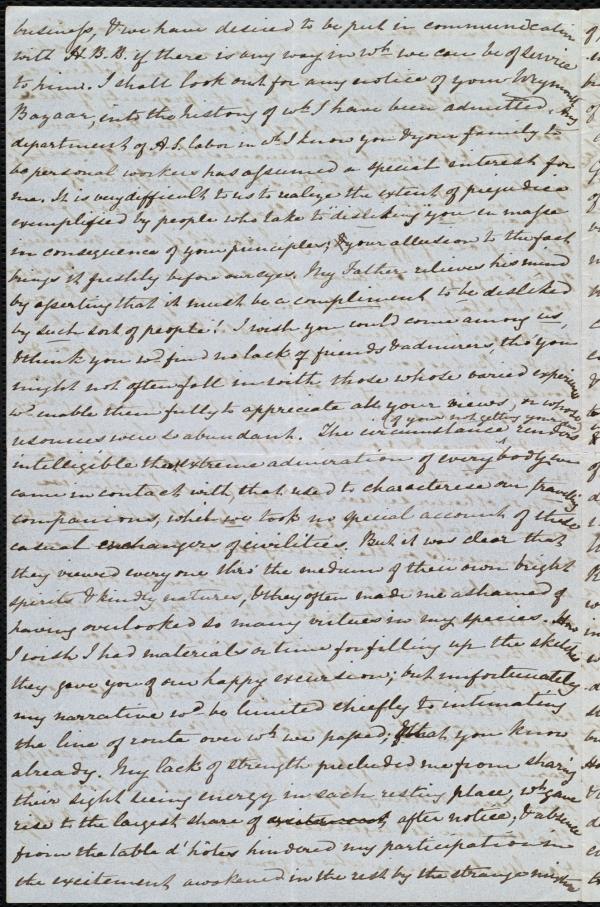 business, & we have desired to be put in communication
with H.B.B. if there is any way in wh we can be of service
to him. I shall look out for any notice of your Weymouth
Bazaar, into the history of wh I have been admitted. Any
department of A S. labor in wh I know you & your family to
be personal workers has assumed a special interest for
me. It is very difficult to us to realize the extent of prejudice
exemplified by people who take to "disliking" you en masse
in consequence of your principles; & your allusion to the fact
brings it freshly before our eyes. My Father relieves his mind
by asserting that it must be a compliment to be disliked
by such sort of people! I wish you could come among us,
& think you wd find no lack of friends & admirers, tho' you
might not often fall in with those whose varied experience
wd enable them fully to appreciate all your views, or whose
resources were so abundant. The circumstance of your not getting you renders
intelligible the extreme admiration of every body you
came in contact with, that used to characterise our traveling
companions, while we took no special account of these
casual exchangers of civilities. But it was clear that
they viewed every one thro' the medium of their own bright
spirits & kindly natures, & they often made me ashamed of
having overlooked so many virtues in my species. How
I wish I had materials or time for filling up the sketches
they gave you of our happy excursion; but unfortunately
my narrative wd be limited chiefly to intimating
the line of route over wh we passed; that you know
already. My lack of strength precluded me from sharing
their sight seeing energy in each resting place, wh gave
rise to the largest share of excitement after notice, & absence
from the table d'hôtes hindered my participation in
the excitement awakened in the rest by the strange